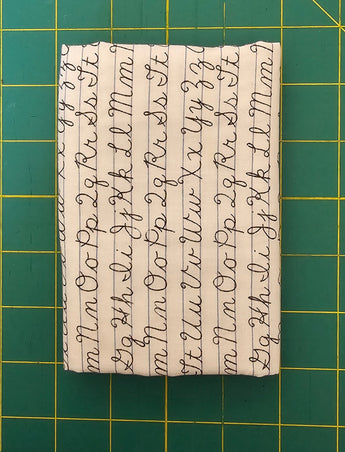 x Yy Zz
m Nn Oo Pp Qq Rr Ss Tt
Gg Hh Ii Jj Kk Ll Mm
m Nn Oo Pp Qq Rr Ss Tt
Tt Uu Vv Ww Xx Yy Zz
m Nn Oo Pp Qq Rr Ss Tt
Gg Hh Ii Jj Kk Ll Mm